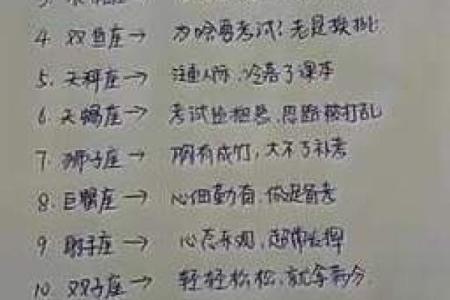 4. 双鱼座→ 为啥要考试？老是挨批
5. 天秤座→ 注重人际，冷落了课本
6. 天蝎座→ 考试检担忧，思路被打乱
7. 狮子座→ 胸有成竹，大不了补考
8. 巨蟹座→ 心细勤奋，做足备考
9. 射手座→ 心态乐观，超常发挥
10. 双子座→ 轻轻松松，就拿满分